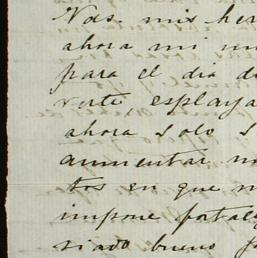 Nos. mis her
ahora mi
para el dia d
verte, esplaya
ahora solo s
aumentar
tos en que
impone fortale
siado bueno